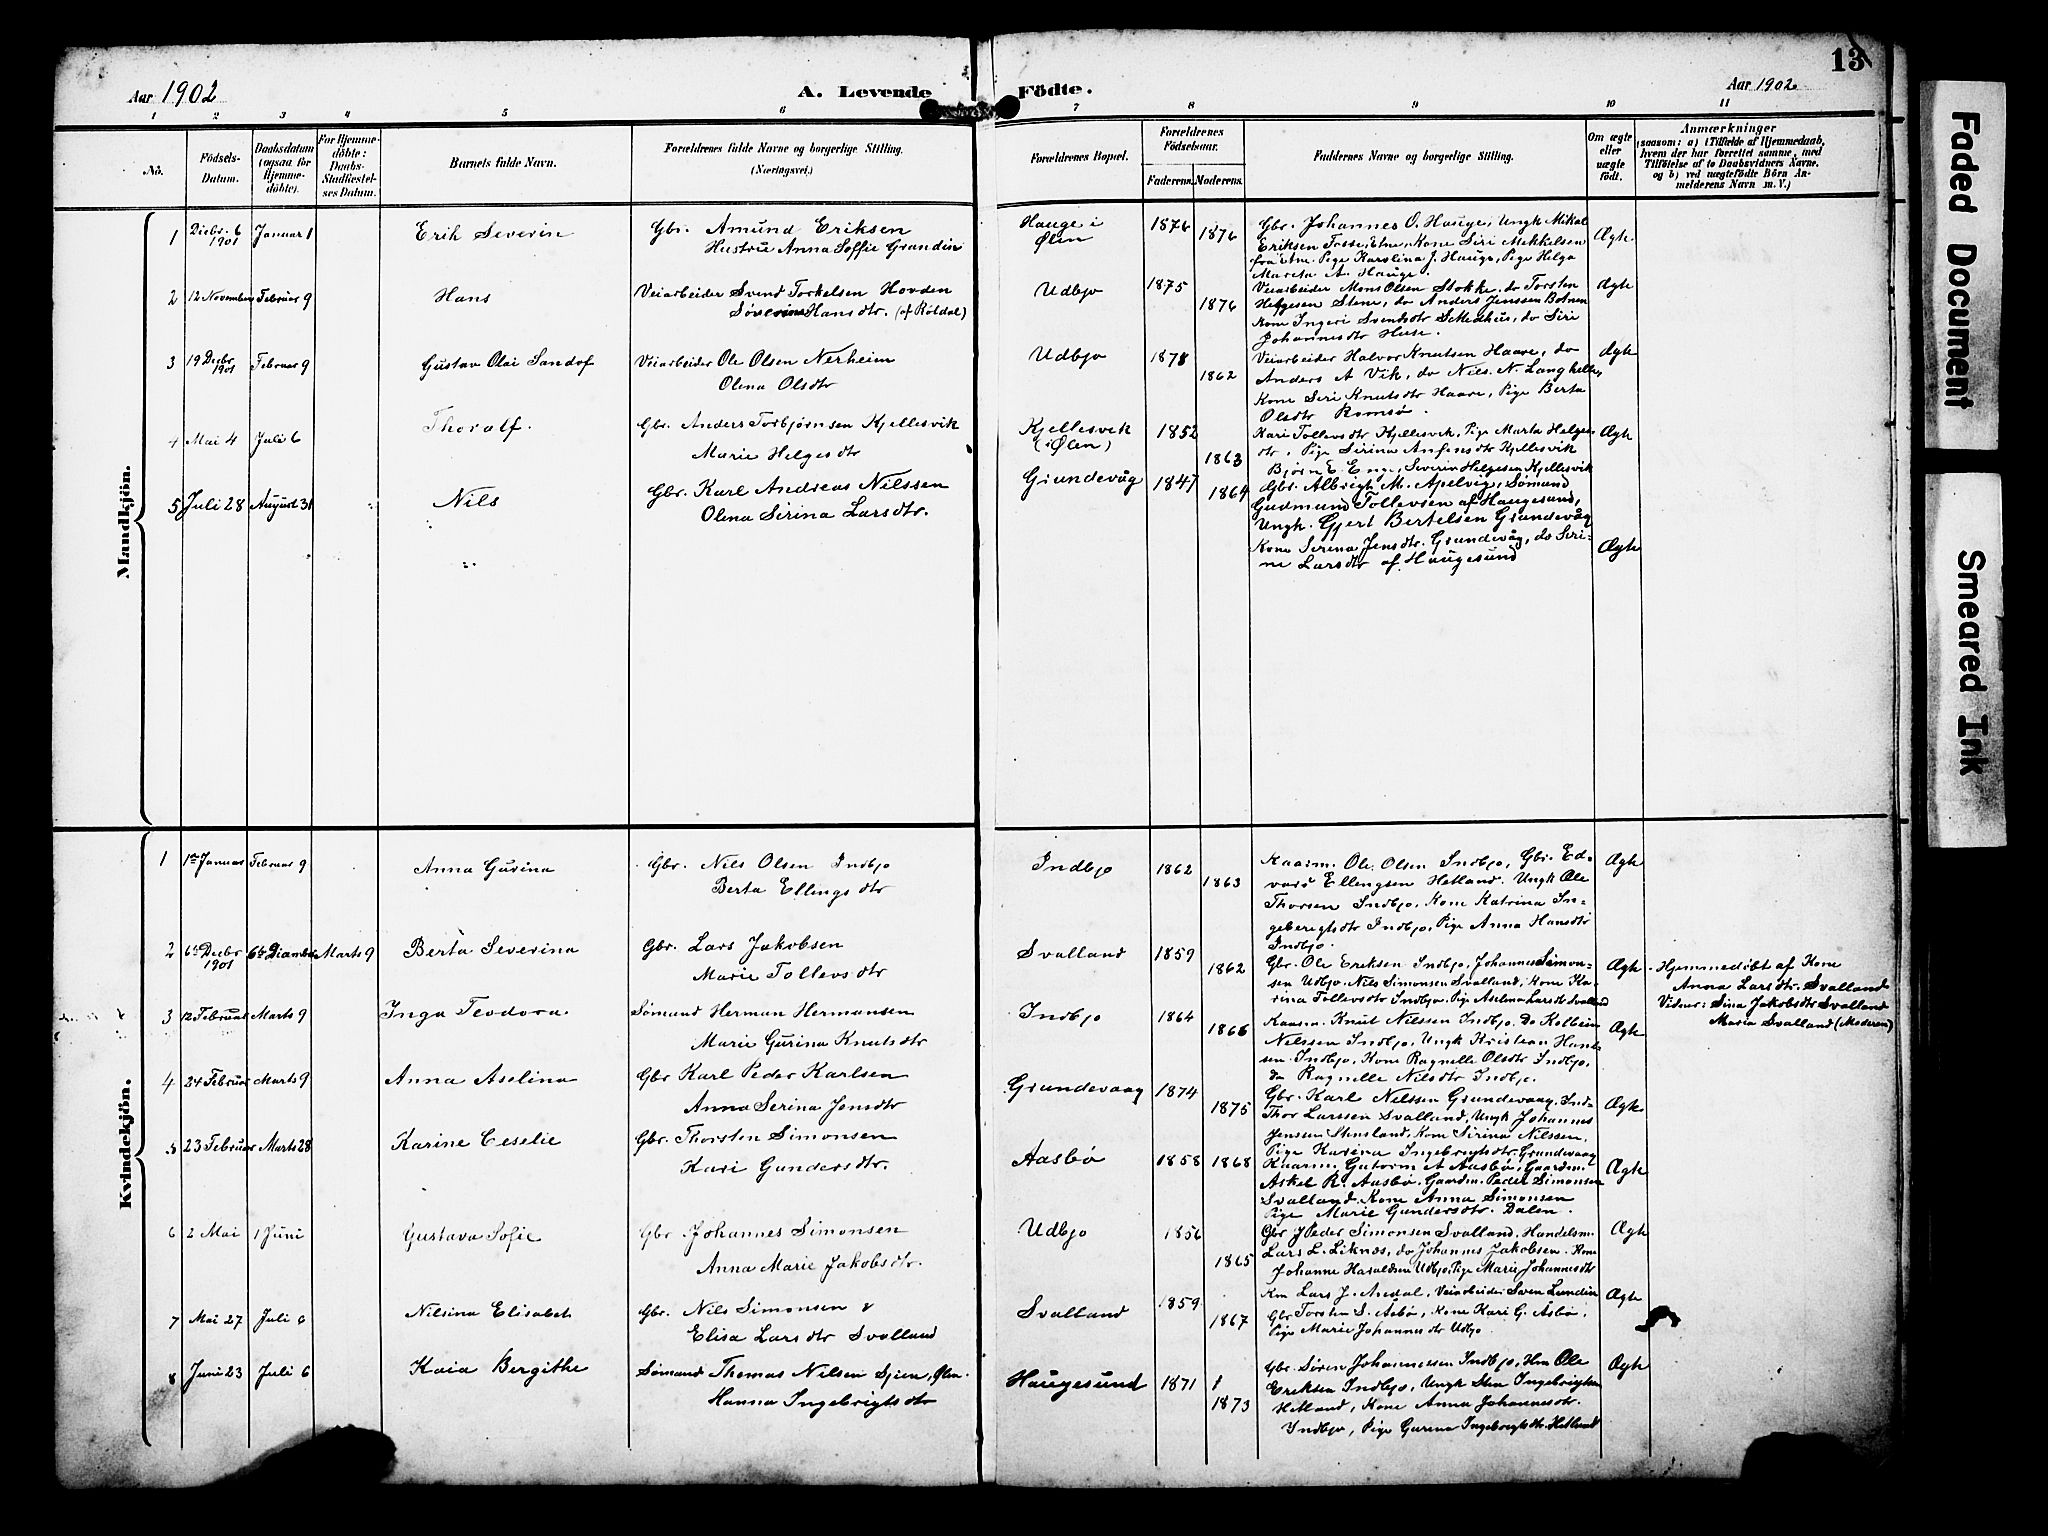 13
Aar 1902
A. Levende Födte.
Aar 1902
1 2 3 4 5 6 7 8 9 10 11
No.
Födsels-
Datum.
Daabsdatum
(ogsaa for
Hjemme-
döbte).
For Hjemme-
döbte:
Daabs-
Stadfæstel-
ses Datum.
Barnets fulde Navn.
Forældrenes fulde Navne og borgerlige Stilling.
(Næringsvei.)
Forældrenes Bopæl.
Forældrenes
Födselsaar.
Faderens.
Moderens.
Faddernes Navne og borgerlige Stilling.
Om ægte
eller
uægte
födt.
Anmærkninger
saasom: a) i Tilfælde af Hjemmedaab,
hvem der har forrettet samme, med
Tilföielse af to Daabsvidners Navne.
og b) ved uægtefödte Börn An-
melderens Navn m. V.)
Mandkjön.
1 Decbr. 6 1901 Januar 1 Erik Severin
Gbr. Amund Eriksen
Hustru Anna Soffie Grundin
Hauge i
Ølen
1876 1876
Gbr. Johannes O. Hauge, Ungk Mikal
Eriksen Tosse, Etne, Kone Siri Mikkelsen
fra Etne. Pige Karolina J. Hauge, Pige Helga
Mareta A. Hauge.
Ægte
2 12 November Februar 9 Hans
Veiarbeider Svend Torkelsen Hovden
Søverine Hansdtr. (af Röldal)
Udbjo 1875 1876
Veiarbeider Mons Olsen Stokke, do Torsten
Helgesen Stene, do Anders Jenssen Botnen
Kone Ingeri Svendsdtr Smedhus, do Siri
Johannesdtr Huse.
Ægte
3 19 Decbr 1901 Februar 9 Gustav Olai Sandof
Veiarbeider Ole Olsen Nerheim
Olena Olsdtr
Udbjo 1878 1862
Veiarbeider Halvor Knutsen Haare, do
Anders A Vik, do Nils. N. Langhelle,
Kone Siri Knutsdtr Haare, Pige Berta
Olsdtr Romsö.
Ægte
4 Mai 4 Juli 6 Thoralf.
Gbr. Anders Torbjørnsen Kjellesvik
Marie Helgesdtr
Kjellesvik
(i Ølen)
1852 1863
Kari Tollevsdtr Kjellesvik, Pige Marta Helges
dtr, Pige Sirina Anfensdtr Kjellesvik
Bjørn E. Enge, Severin Helgesen Kjellesvik
Ægte
5 Juli 28 August 31 Nils
Gbr. Karl Andreas Nilssen
Olena Serina Larsdtr.
Grundevåg 1847 1864
Gbr. Albrigt M. Apelvig, Sømand
Gudmund Tollevsen af Haugesund,
Ungk. Gjert Bertelsen Grundevåg
Kone Serena Jensdtr. Grundevåg, do Seri-
ne Larsdtr af Haugesund
Ægte
Kvindekjön.
1 1ste Januar Februar 9 Anna Gurina
Gbr. Nils Olsen Indbjo
Berta Ellingsdtr
Indbjo 1862 1863
Kaarm. Ole Olsen Indbjo, Gbr. Ed-
vard Ellengsen Hetland. Ungk Ole
Thorsen Indbjo, Kone Katrina In-
geberigtsdtr Indbjo, Pige Anna Hansdtr
Indbjo.
Ægte
2 6te Decbr 1901 6te December Marts 9 Berta Severina
Gbr. Lars Jakobsen
Marie Tollevsdtr
Svalland 1859 1862
Gbr. Ole Eriksen Indbjo, Johannes Simon-
sen Udbjo. Nils Simonsen Svalland, Kone Ka-
rina Tollevsdtr Indbjo. Pige Aselena Larsdtr Svalland
Ægte
Hjemmedöbt af Kone
Anna Larsdtr. Svalland
Vidner: Sina Jakobsdtr Svalland
Maria Svalland (Moderen)
3 12 Februar Marts 9 Inga Teodora.
Sömand Herman Hermansen
Marie Gurina Knutsdtr
Indbjo 1864 1866
Kaarm. Knut Nilssen Indbjo. Do Kolbein
Nilssen Indbjo, Ungk Kristian Han-
sen. Indbjo, Kone Ragnelle Olsdtr Indbjo,
do Ragnelle Nilsdtr Indbjo.
Ægte
4 24 Februar Marts 9 Anna Aselina
Gbr Karl Peder Karlsen
Anna Serina Jensdtr
Grundevaag 1874 1875
Gbr. Karl Nilssen Grundevaag. Ind-
Thor Larssen Svalland, Ungk Johannes
Jenssen Stensland, Kone Sirina Nilssen,
Pige Karina Ingebrigtsdtr. Grundevaag
Ægte
5 23 Februar Marts 28 Karine Ceselie
Gbr. Thorsten Simonsen
Kari Gundersdtr.
Aasbö 1858 1868
Kaarm. Gutorm A Aasbö, Gaardm.
Askel R. Aasbö. Gaardm. Peder Simonsen
Svalland. Kone Anna Simonsen
Pige Marie Gundersdtr. Dalen.
Ægte
6 2 Mai 1 Juni Gustava Sofie
Gbr. Johannes Simonsen
Anna Marie Jakobsdtr.
Udbjo 1856 1865
Gbr Peder Simonsen Svalland, Handelsm.
Lars L. Liknæs, do Johannes Jakobsen. Kone
Johanne Haraldsen Udbjo, Pige Marie Johannesdtr
Ægte
7 Mai 27 Juli 6 Nilsina Elisabet
Gbr. Nils Simonsen &
Elisa Larsdtr Svalland
Svalland 1859 1867
Km Lars J. Aredal, Veiarbeider Sven Lundin
Gbr Torsten S. Åsbø, Kone Kari G. Åsbø,
Pige Marie Johannesdtr Udbjo.
Ægte
8 Juni 23 Juli 6 Kaia Bergithe
Sømand Thomas Nilsen Sjien, Ølen.
Hanna Ingebrigtsdtr
Haugesund 1871 1873
Gbr. Søren Johannessen Indbjo, Hm Ole
Eriksen Indbjo, Ungk Sten Ingebrigtsen
Hetland, Kone Anna Johannesdtr.
Indbjo, Pige Gurina Ingebregtsdtr. Hetland
Ægte
Faded Document
Smeared Ink